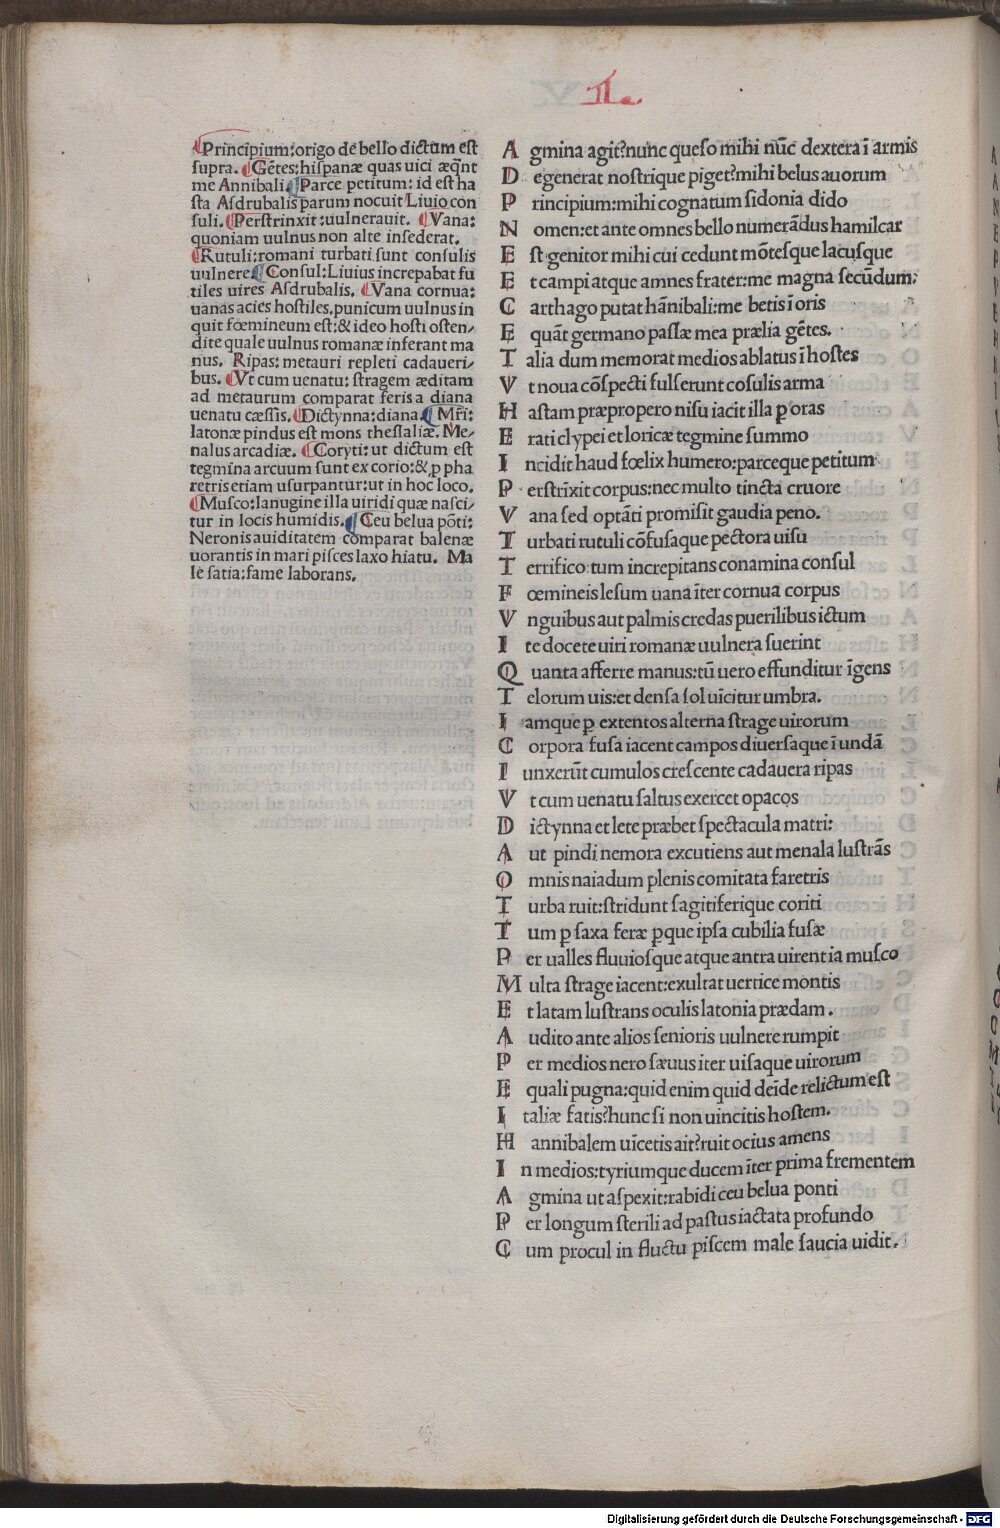 II.
Principium: origo de bello dictum est
supra. Gẽtes: hispanæ quas uici æq̃nt
me Annibali Parce petitum: id est ha
sta Asdrubalis parum nocuit Liuio con
suli. Perstrinxit: uulnerauit. Vana:
quoniam uulnus non alte insederat.
Rutuli: romani turbati sunt consulis
uulnere Consul: Liuius increpabat fu
tiles uires Asdrubalis. Vana cornua:
uanas acies hostiles. punicum uulnus in
quit fœmineum est: & ideo hosti osten/
dite quale uulnus romanæ inferant ma
nus. Ripas: metauri repleti cadaueri/
bus. Vt cum uenatu: stragem æditam
ad metaurum comparat feris a diana
uenatu cæssis. Dictynna: diana Mr̃i:
latonæ pindus est mons thessaliæ. Me/
nalus arcadiæ. Coryti: ut dictum est
tegmina arcuum sunt ex corio: & ꝓ pha
retris etiam usurpantur: ut in hoc loco.
Musco: lanugine illa uiridi quæ nasci/
tur in locis humidis. Ceu belua põti:
Neronis auiditatem comparat balenæ
uorantis in mari pisces laxo hiatu. Ma
le satia: fame laborans.
A gmina agit? nunc queso mihi nũc dextera ĩ armis
D egenerat nostrique piget? mihi belus auorum
P rincipium: mihi cognatum sidonia dido
N omen: et ante omnes bello numerãdus hamilcar
E st genitor mihi cui cedunt mõtesque lacusque
E t campi atque amnes frater: me magna secũdum:
C arthago putat hãnibali: me betis ĩ oris
E quãt germano passæ mea prælia gẽtes.
T alia dum memorat medios ablatus ĩ hostes
V t noua cõspecti fulserunt cõsulis arma
H astam præpropero nisu iacit illa ꝑ oras
E rati clypei et loricæ tegmine summo
I ncidit haud fœlix humero: parceque petitum
P erstrĩxit corpus: nec multo tincta cruore
V ana sed optãti promisit gaudia peno.
T urbati rutuli cõfusaque pectora uisu
T errifico: tum increpitans conamina consul
F œmineis lesum uana ĩter cornua corpus
V nguibus aut palmis credas puerilibus ictum
I te docete uiri romanæ uulnera fuerint
Q uanta afferre manus: tũ uero effunditur ĩgens
T elorum uis: et densa sol uĩcitur umbra.
I amque ꝑ extentos alterna strage uirorum
C orpora fusa iacent campos diuersaque ĩ undã
I unxerũt cumulos crescente cadauera ripas
V t cum uenatu saltus exercet opacos
D ictynna et lete præbet spectacula matri:
A ut pindi nemora excutiens aut menala lustrãs
O mnis naiadum plenis comitata faretris
T urba ruit: stridunt sagitiferique coriti
T um ꝑ saxa feræ ꝑque ipsa cubilia fusæ
P er ualles fluuiosque atque antra uirentia musco
M ulta strage iacent: exultat uertice montis
E t latam lustrans oculis latonia prædam.
A udito ante alios senioris uulnere rumpit
P er medios nero sæuus iter uisaque uirorum
E quali pugna: quid enim quid deĩde relictum est
I taliæ fatis? hunc si non uincitis hostem.
H annibalem uĩcetis ait? ruit ocius amens
I n medios: tyriumque ducem ĩter prima frementem
A gmina ut aspexit: rabidi ceu belua ponti
P er longum sterili ad pastus iactata profundo
C um procul in fluctu piscem male saucia uidit.
Digitalisierung gefördert durch die Deutsche Forschungsgemeinschaft - DFG